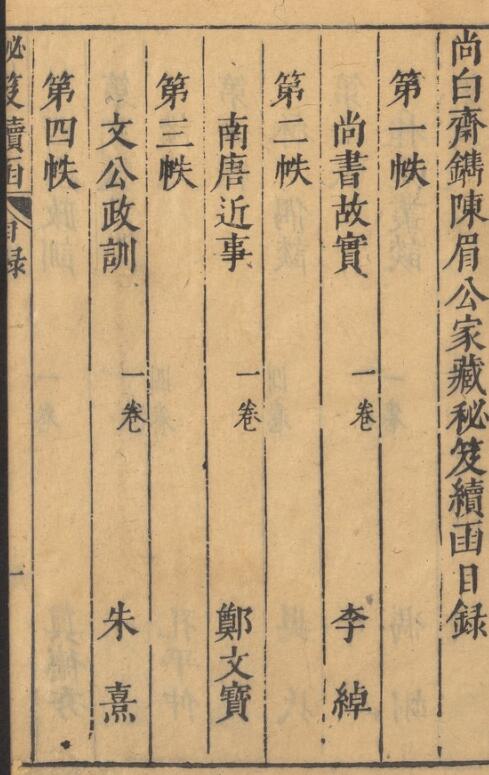 尚白齋鐫陳眉公家藏秘笈續函目録
第一帙
尚書故實 一卷 李綽
第二帙
南唐近事 一卷 鄭文寶
第三帙
文公政訓 一卷 朱熹
第四帙
秘笈續函 目録 一